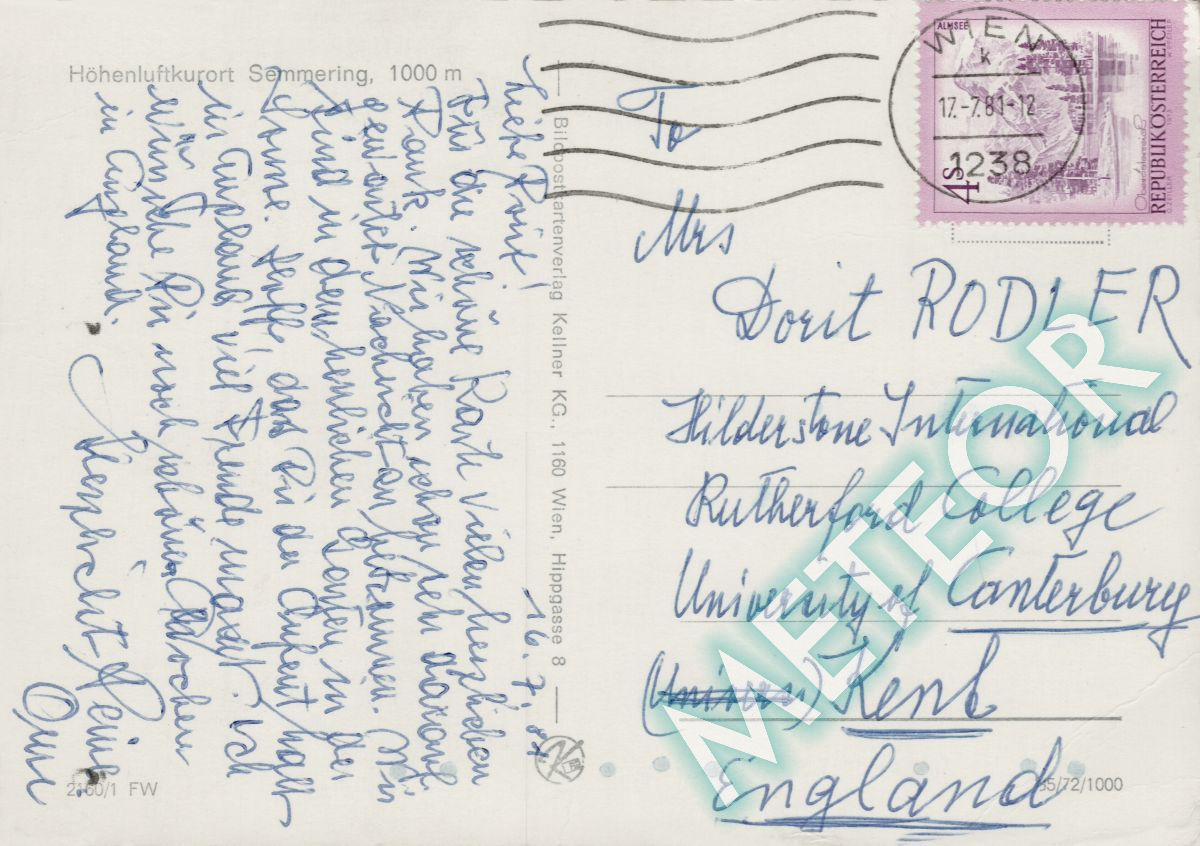 Höhenluftkurort Semmering, 1000 m
16. 7. 81
Liebe Dorit!
Für die schöne Karte vielen herzlichen
Dank. Wir haben schon sehr darauf
gewartet Nachricht zu bekommen. Wir
sind in den herrlichen Garten in der
Sonne. Hoffe, das Du den Aufenthalt
in England viel Freude macht. Ich
wünsche Dir noch schöne Wochen
in England.
Herzlichst Deine
Omi
2160/1 FW
Bildpostkartenverlag Kellner KG., 1160 Wien, Hippgasse 8
To
Mrs
Dorit RODLER
Hilderstone International
Rutherford College
University of Canterbury
Kent
England
85/72/1000
WIEN
k
17.-7.81-12
1238
ALMSEE
4S
REPUBLIK ÖSTERREICH
METEOR